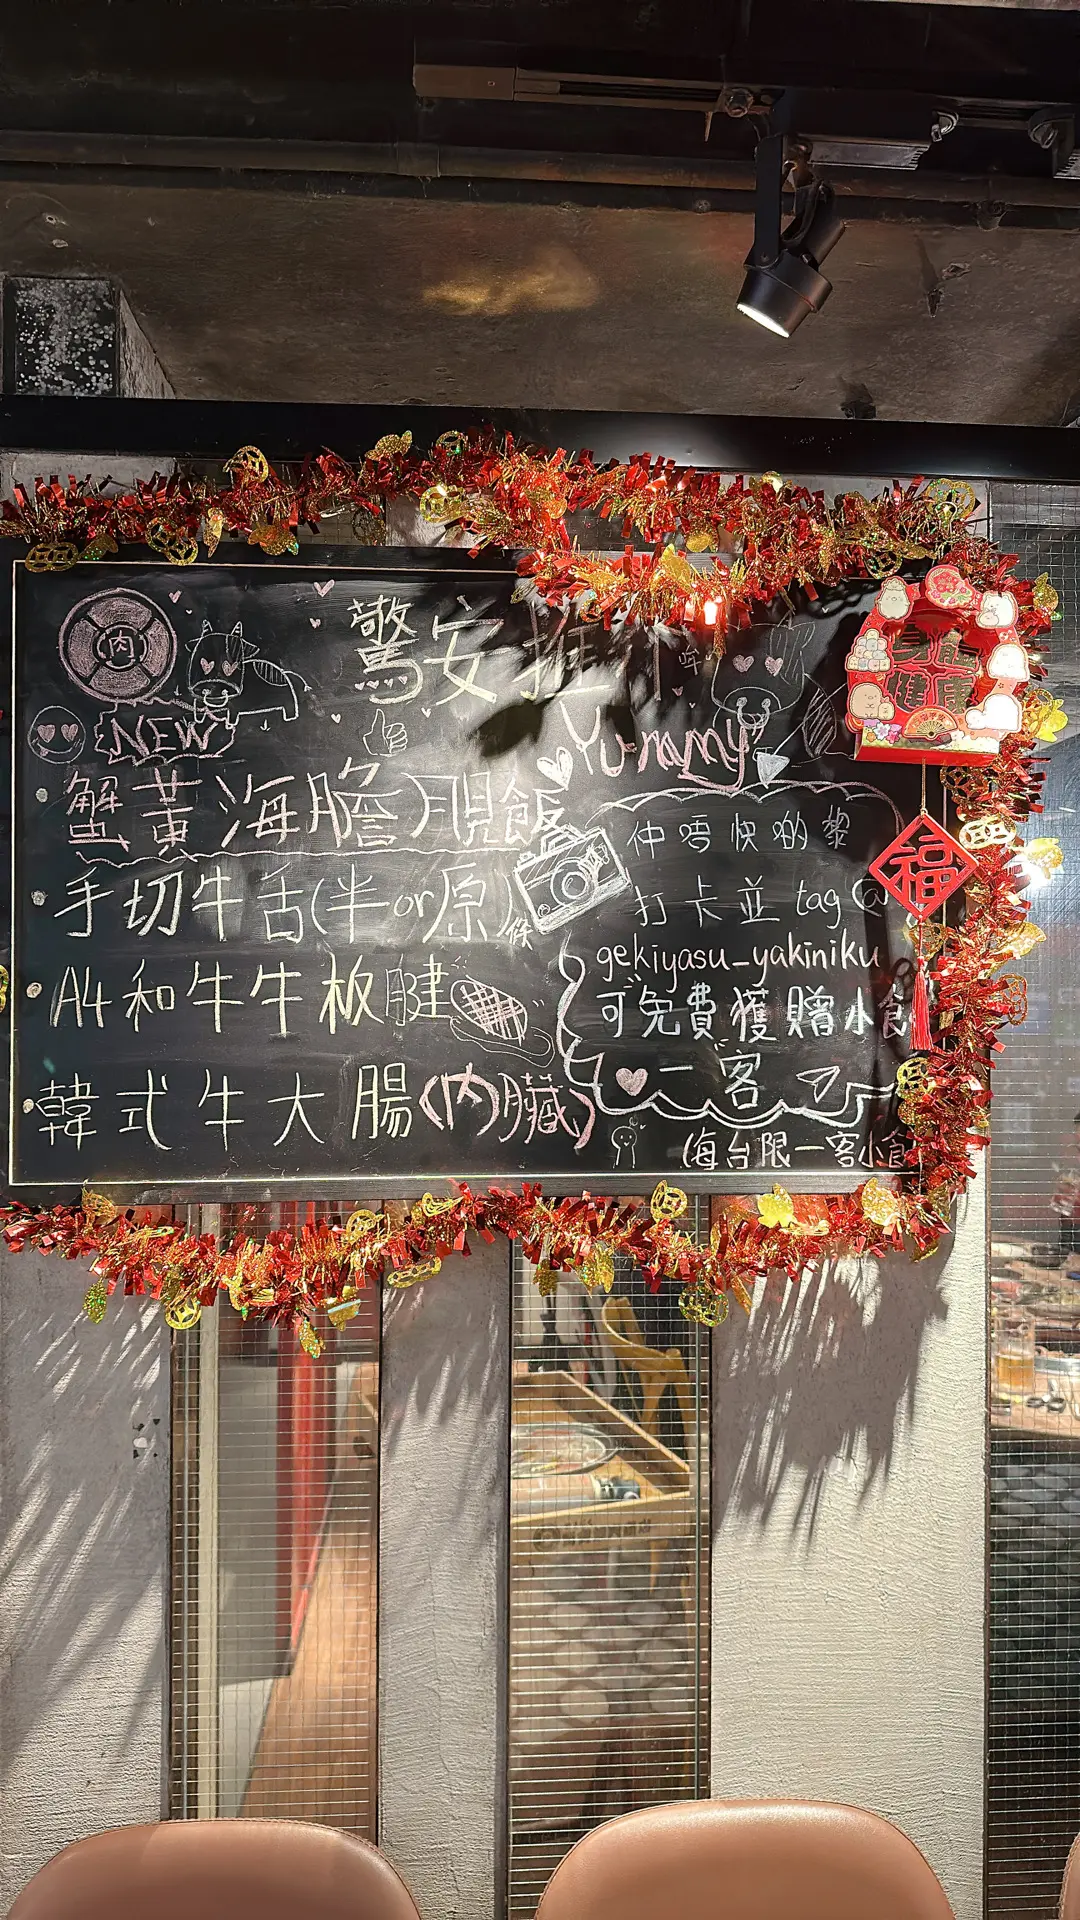 驚安推介
肉
NEW
Yummy
蟹黃海膽月見飯
手切牛舌(半or原條)
A4和牛牛板腱
韓式牛大腸(內臟)
仲唔快啲黎
打卡並 tag@
gekiyasu_yakiniku
可免費獲贈小食
一客
(每台限一客小食
身體
健康
福